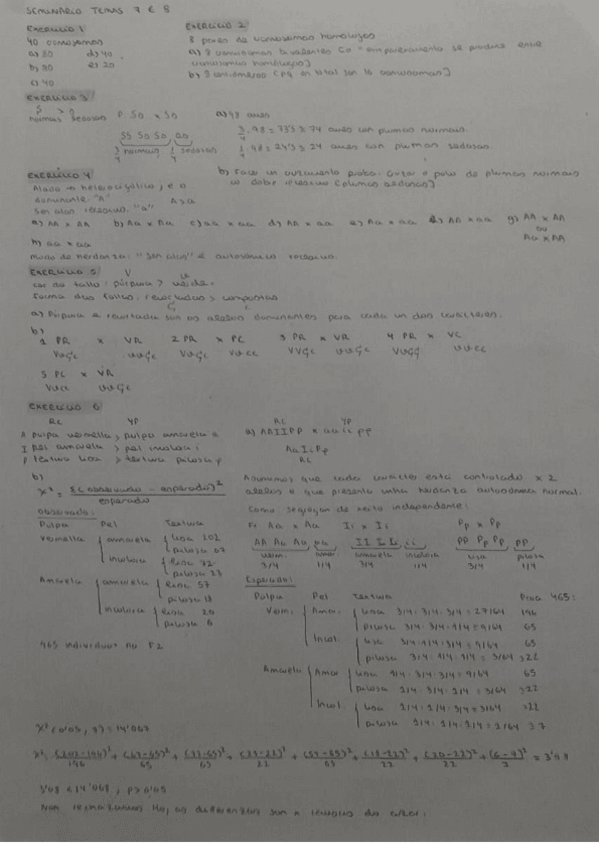 SEMINARIO TEMAS 7 E 8
EXERCICIO 1
40 cromosomas
a) 80 d) 40
b) 80 e) 20
c) 40
EXERCICIO 2
8 pares de cromosomas homólogos
a) 8 cromosomas bivalentes (o emparellamento se produce entre
cromosomas homólogos)
b) 8 centrómeros (pq en total son 16 cromosomas)
EXERCICIO 3
S > s
normais sedosas P: Ss x Ss
SS Ss Ss ss
3/4 normais 1/4 sedosas
a) 98 aves
3/4 · 98 = 73'5 ≈ 74 aves con plumas normais
1/4 · 98 = 24'5 ≈ 24 aves con plumas sedosas
b) Facer un cruzamento proba. Cruzar o polo de plumas normais
co dobre recesivo (plumas sedosas)
EXERCICIO 4
Alado → heterocigótico, e o
dominante. "A" A > a
Sen alas: recesivo. "a"
a) AA x AA b) Aa x Aa c) aa x aa d) AA x aa e) Aa x aa f) AA x aa g) AA x AA
ou
Aa x AA
h) aa x aa
Modo de herdanza: "Sen alas" é autosómico recesivo.
EXERCICIO 5
Cor do tallo: púrpura > verde
Forma das follas: recortadas > compostas
a) Púrpura e recortada son os alelos dominantes para cada un dos caracteres.
b)
1 PR x VR 2 PR x PC 3 PR x VR 4 PR x VC
5 PC x VR
EXERCICIO 6
A pulpa vermella > pulpa amarela a
I pel amarela > pel incolora i
P textura lisa > textura pilosa p
a) AAIIPP x aaiipp
AaIiPp
b)
x² = Σ(observado - esperado)²
esperado
Observado:
Pulpa Pel Textura
Vermella amarela lisa 202
pilosa 67
incolora lisa 72
pilosa 23
Amarela amarela lisa 57
pilosa 18
incolora lisa 20
pilosa 6
465 individuos na F2
Asumimos que cada carácter está controlado x 2
alelos e que presenta unha herdanza autosómica normal.
Como segregan de xeito independente:
Aa x Aa Ii x Ii Pp x Pp
AA Aa Aa aa II Ii Ii ii PP Pp Pp pp
3/4 1/4 3/4 1/4 3/4 1/4
Esperado:
Pulpa Pel Textura Prop 465:
Verm. Amar. lisa 3/4 · 3/4 · 3/4 = 27/64 196
pilosa 3/4 · 3/4 · 1/4 = 9/64 65
Incol. lisa 3/4 · 1/4 · 3/4 = 9/64 65
pilosa 3/4 · 1/4 · 1/4 = 3/64 22
Amarela Amar lisa 1/4 · 3/4 · 3/4 = 9/64 65
pilosa 1/4 · 3/4 · 1/4 = 3/64 22
Incol. lisa 1/4 · 1/4 · 3/4 = 3/64 22
pilosa 1/4 · 1/4 · 1/4 = 1/64 7
x² (0'05, 7) = 14'067
x² = (202-196)²/196 + (67-65)²/65 + (72-65)²/65 + (23-22)²/22 + (57-65)²/65 + (18-22)²/22 + (20-22)²/22 + (6-7)²/7 =
< 14'067, p > 0'05
Non rexeitamos Ho, as diferenzas son